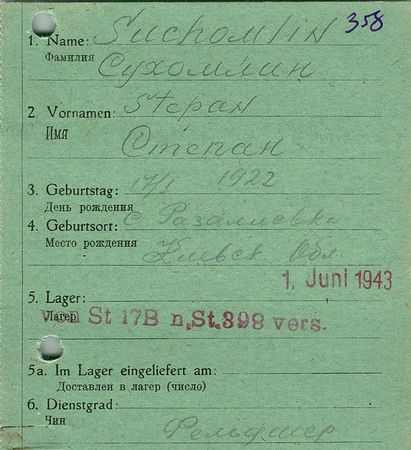 358
1. Name: Suchomlin
Фамилия Сухомлин
2. Vornamen: Stepan
Имя Степан
3. Geburtstag: 17/I 1922
День рождения
4. Geburtsort: с Разалиевка
Место рождения Киевск Обл.
1. Juni 1943
5. Lager:
Лагер
von St 17B n. St. 398 vers.
5a. Im Lager eingeliefert am:
Доставлен в лагер (число)
6. Dienstgrad:
Чин Фельдшер